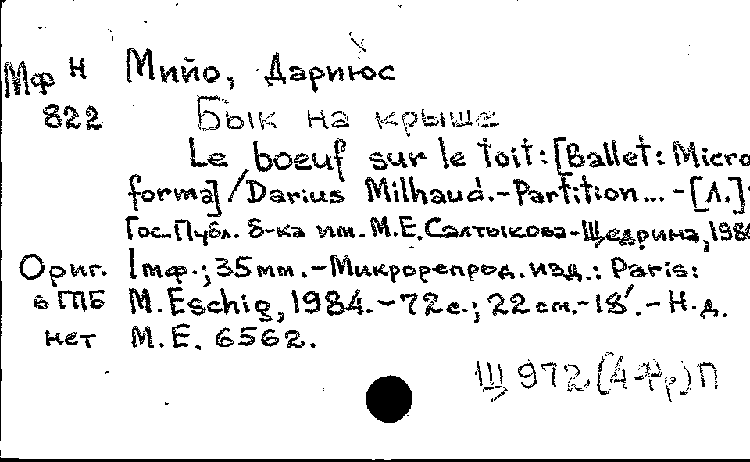 Мф Н Мийо, Дариюс
822 Бык на крыше
Le boeuf sur le toit: [Ballet: Micro
forma] / Darius Milhaud.-Partition... -[Л.]:
Гос. Публ. б-ка им. М.Е.Салтыкова-Щедрина, 198
Ориг. 1мф.; 35мм. - Микрорепрод. изд.: Paris:
в ГПБ M. Eschig, 1984. - 72с.; 22см.-18'. - Н.д.
нет M.E. 6562.
Щ 972(4Фр)П